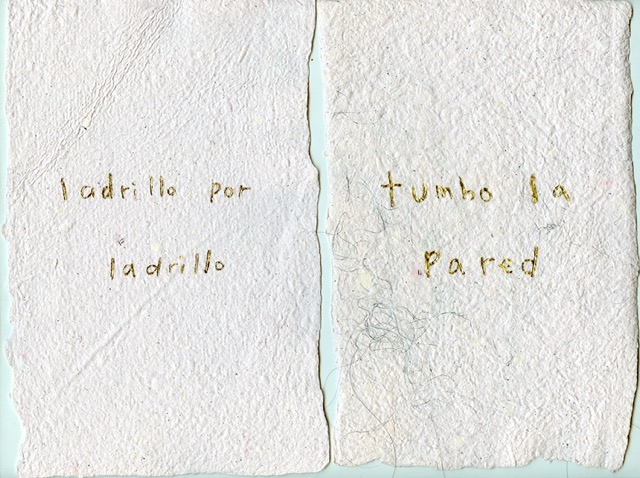 ladrillo por
ladrillo
tumbo la
pared